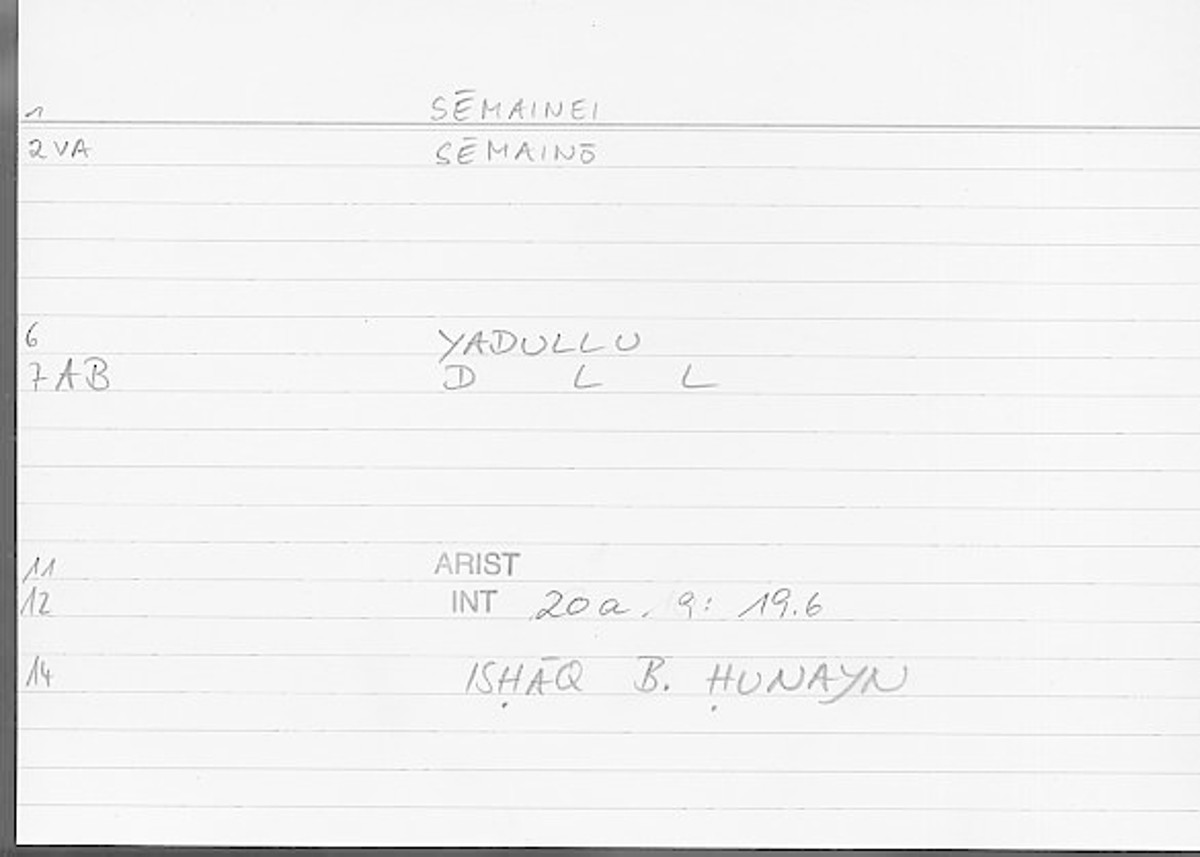 1 SĒMAINEI
2VA SĒMAINŌ
6 YADULLU
7AB D L L
11 ARIST
12 INT 20a, 9: 19.6
14 ISḤĀQ B. ḤUNAYN